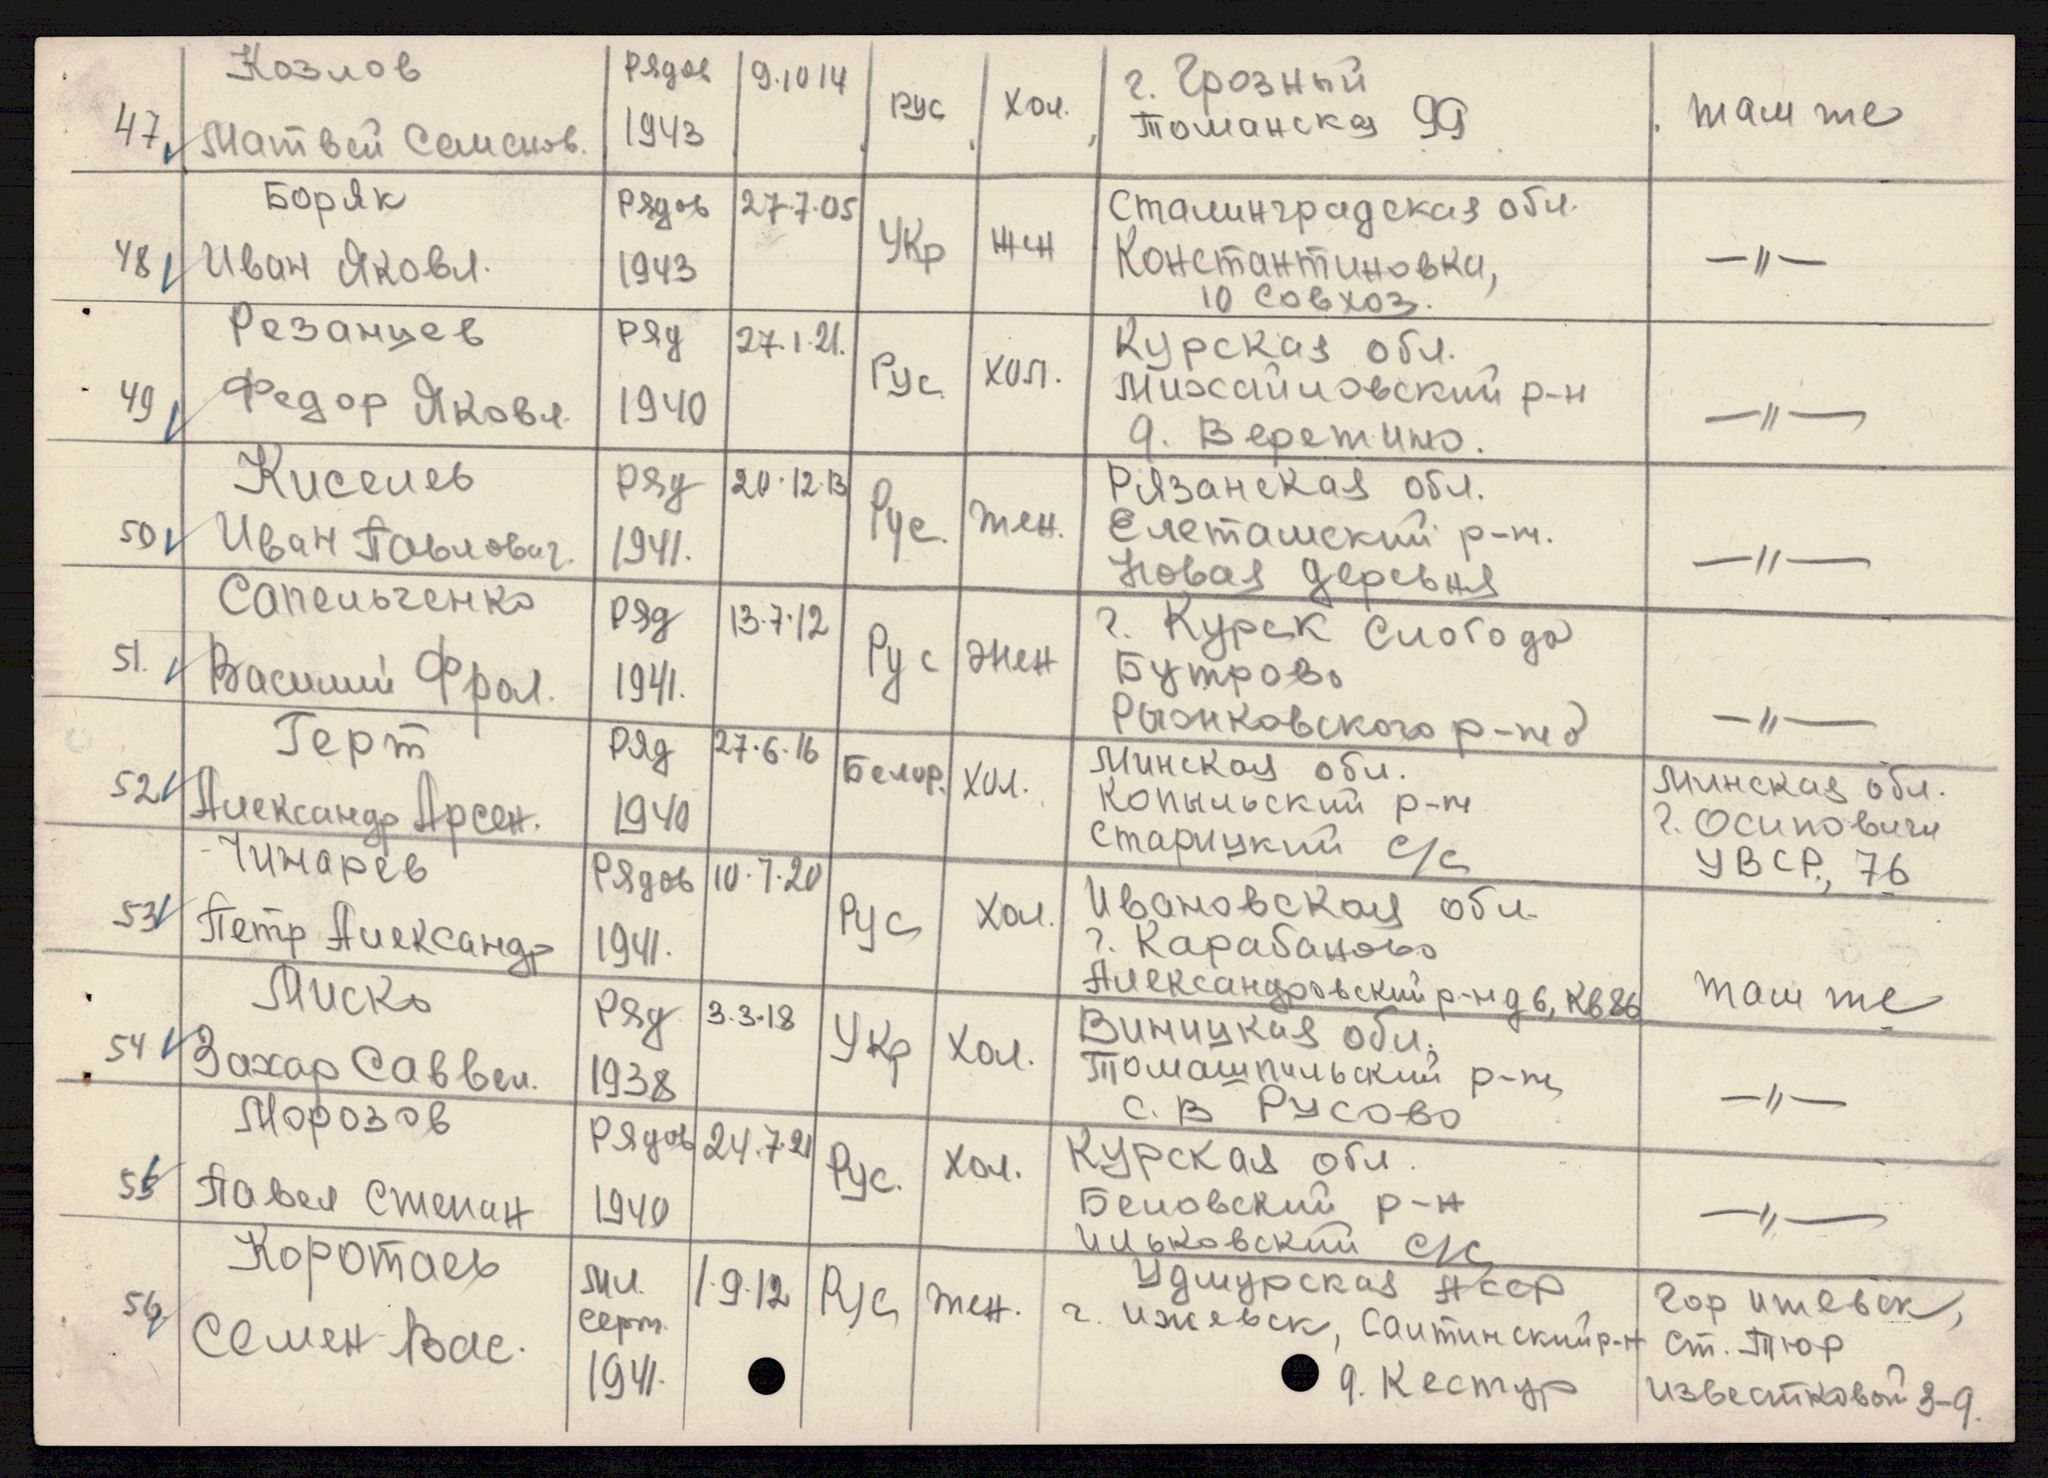 47 Козлов Рядов 9.10.14 рус хол. г. Грозный там же
Матвей Семенов. 1943 Томанская 99
48 Боряк Рядов 27.7.05 Укр жен Сталинградская обл. —〃—
Иван Яковл. 1943 Константиновка,
10 Совхоз.
49 Резанцев ряд 27.1.21. Рус хол. Курская обл. —〃—
Федор Яковл. 1940 Михайловский р-н
д. Веретино.
50 Киселев ряд 20.12.13 Рус. жен. Рязанская обл. —〃—
Иван Павлович. 1941. Елетамский р-н.
Новая деревня
51. Сапельченко ряд 13.7.12 Рус жен г. Курск Слобода —〃—
Василий Фрол. 1941. Бутрово
Рыжковского р-на
52 Герт ряд 27.6.16 Белор. хол. Минская обл. Минская обл.
Александр Арсен. 1940 Копыльский р-н г. Осиповичи
Старицкий с/с УВСР., 76
53 Чинарев Рядов 10.7.20 Рус Хол. Ивановская обл. там же
Петр Александр 1941. г. Карабаново
Александровский р-н д 6, кв 86
54 Миско Ряд 3.3.18 Укр Хол. Виницкая обл. —〃—
Захар Саввел. 1938 Томашпильский р-н,
с. В Русово
55 Морозов Рядов 24.7.21 Рус. Хол. Курская обл. —〃—
Павел Степан 1940 Беловский р-н
Ильковский с/с
56 Коротаев Мл. серж. 1.9.12 Рус жен. Удмурская АССР гор Ижевск,
Семен Вас. 1941. г. Ижевск, Саитинский р-н ст. Тюр
д. Кестур известковой 3-9.